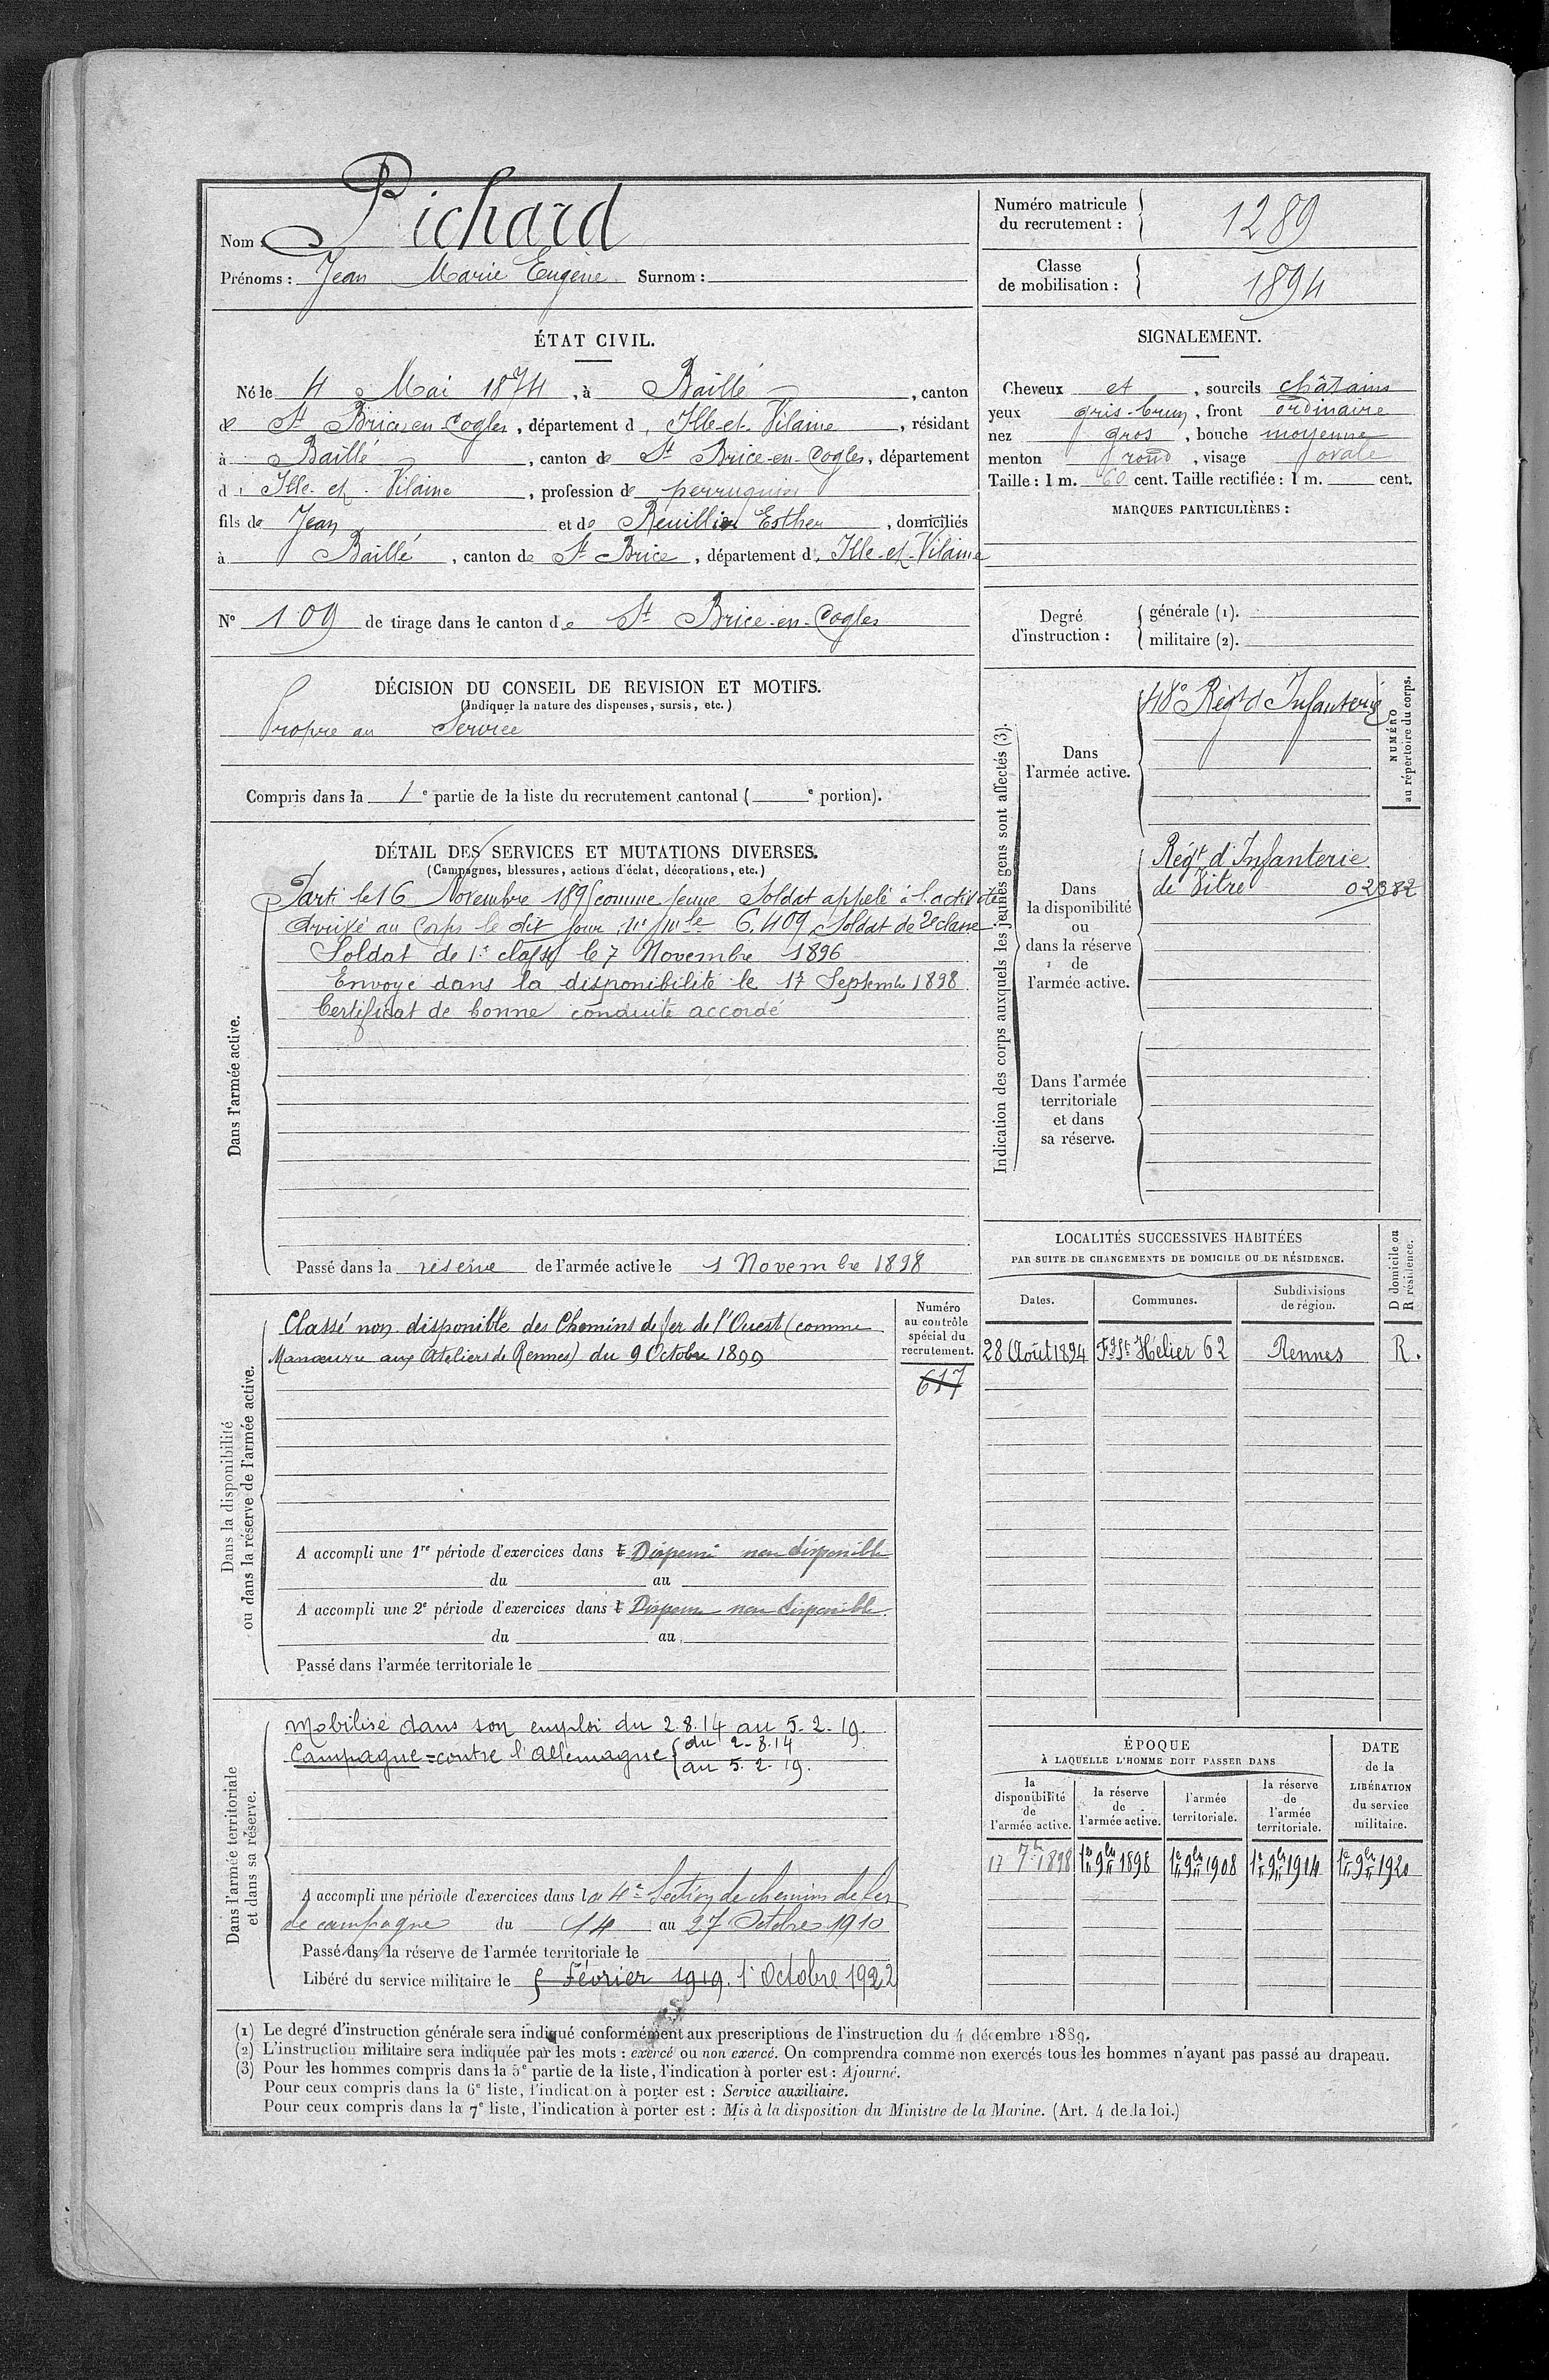 Nom : Pichard
Prénoms : Jean Marie Eugène Surnom :
Numéro matricule
du recrutement : 1289
Classe
de mobilisation : 1894
ÉTAT CIVIL.
Né le 4 Mai 1874, à Baillé, canton
de St Brice-en-Cogles, département d'Ille-et-Vilaine, résidant
à Baillé, canton de St Brice-en-Cogles, département
d'Ille-et-Vilaine, profession de perruquier
fils de Jean et de Esther, domiciliés
à Baillé, canton de St Brice, département d'Ille-et-Vilaine
N° 109 de tirage dans le canton de St Brice-en-Cogles
DÉCISION DU CONSEIL DE REVISION ET MOTIFS.
(Indiquer la nature des dispenses, sursis, etc.)
Propre au Service
Compris dans la 1e partie de la liste du recrutement cantonal ( e portion).
DÉTAIL DES SERVICES ET MUTATIONS DIVERSES.
(Campagnes, blessures, actions d'éclat, décorations, etc.)
Dans l'armée active.
Parti le 16 Novembre 1895 comme jeune Soldat appelé à l'activité
Arrivé au Corps le dit jour, nº mle 6.409 Soldat de 2e classe
Soldat de 1e classe le 7 Novembre 1896
Envoyé dans la disponibilité le 17 Septembre 1898
Certificat de bonne conduite accordé
Passé dans la réserve de l'armée active le 1 Novembre 1898
Dans la disponibilité
ou dans la réserve de l'armée active.
Classé non disponible des Chemins de fer de l'Ouest (comme
Manœuvre aux Ateliers de Rennes) du 9 Octobre 1899
Numéro
au contrôle
spécial du
recrutement.
617
A accompli une 1re période d'exercices dans l Dispensé non disponible
du au
A accompli une 2e période d'exercices dans l Dispensé non disponible
du au
Passé dans l'armée territoriale le
Dans l'armée territoriale
et dans sa réserve.
Mobilisé dans son emploi du 2.8.14 au 5.2.19.
Campagne = contre l'Allemagne { du 2-8.14
au 5.2.19.
A accompli une période d'exercices dans la 4e Section de chemins de fer
de campagne du 14 au 27 Octobre 1910
Passé dans la réserve de l'armée territoriale le
Libéré du service militaire le 5 Février 1919. 1r Octobre 1922
SIGNALEMENT.
Cheveux et, sourcils châtains
yeux gris-brun, front ordinaire
nez gros, bouche moyenne
menton rond, visage ovale
Taille : 1 m. 60 cent. Taille rectifiée : 1 m. cent.
MARQUES PARTICULIÈRES :
Degré
d'instruction :
générale (1).
militaire (2).
Indication des corps auxquels les jeunes gens sont affectés (3).
NUMÉRO
au répertoire du corps.
Dans
l'armée active.
48e Régt d'Infanterie
Dans
la disponibilité
ou
dans la réserve
de
l'armée active.
Régt d'Infanterie
de Vitré 02382
Dans l'armée
territoriale
et dans
sa réserve.
LOCALITÉS SUCCESSIVES HABITÉES
PAR SUITE DE CHANGEMENTS DE DOMICILE OU DE RÉSIDENCE.
D domicile ou
R résidence.
Dates. Communes. Subdivisions
de région.
28 Août 1894 Fg St Hélier 62 Rennes R.
ÉPOQUE
À LAQUELLE L'HOMME DOIT PASSER DANS
la
disponibilité
de
l'armée active.
la réserve
de
l'armée active.
l'armée
territoriale.
la réserve
de
l'armée
territoriale.
DATE
de la
LIBÉRATION
du service
militaire.
17 7bre 1898 1er 9bre 1898 1er 9bre 1908 1er 9bre 1914 1er 9bre 1920
(1) Le degré d'instruction générale sera indiqué conformément aux prescriptions de l'instruction du 4 décembre 1889.
(2) L'instruction militaire sera indiquée par les mots : exercé ou non exercé. On comprendra comme non exercés tous les hommes n'ayant pas passé au drapeau.
(3) Pour les hommes compris dans la 5e partie de la liste, l'indication à porter est : Ajourné.
Pour ceux compris dans la 6e liste, l'indication à porter est : Service auxiliaire.
Pour ceux compris dans la 7e liste, l'indication à porter est : Mis à la disposition du Ministre de la Marine. (Art. 4 de la loi.)